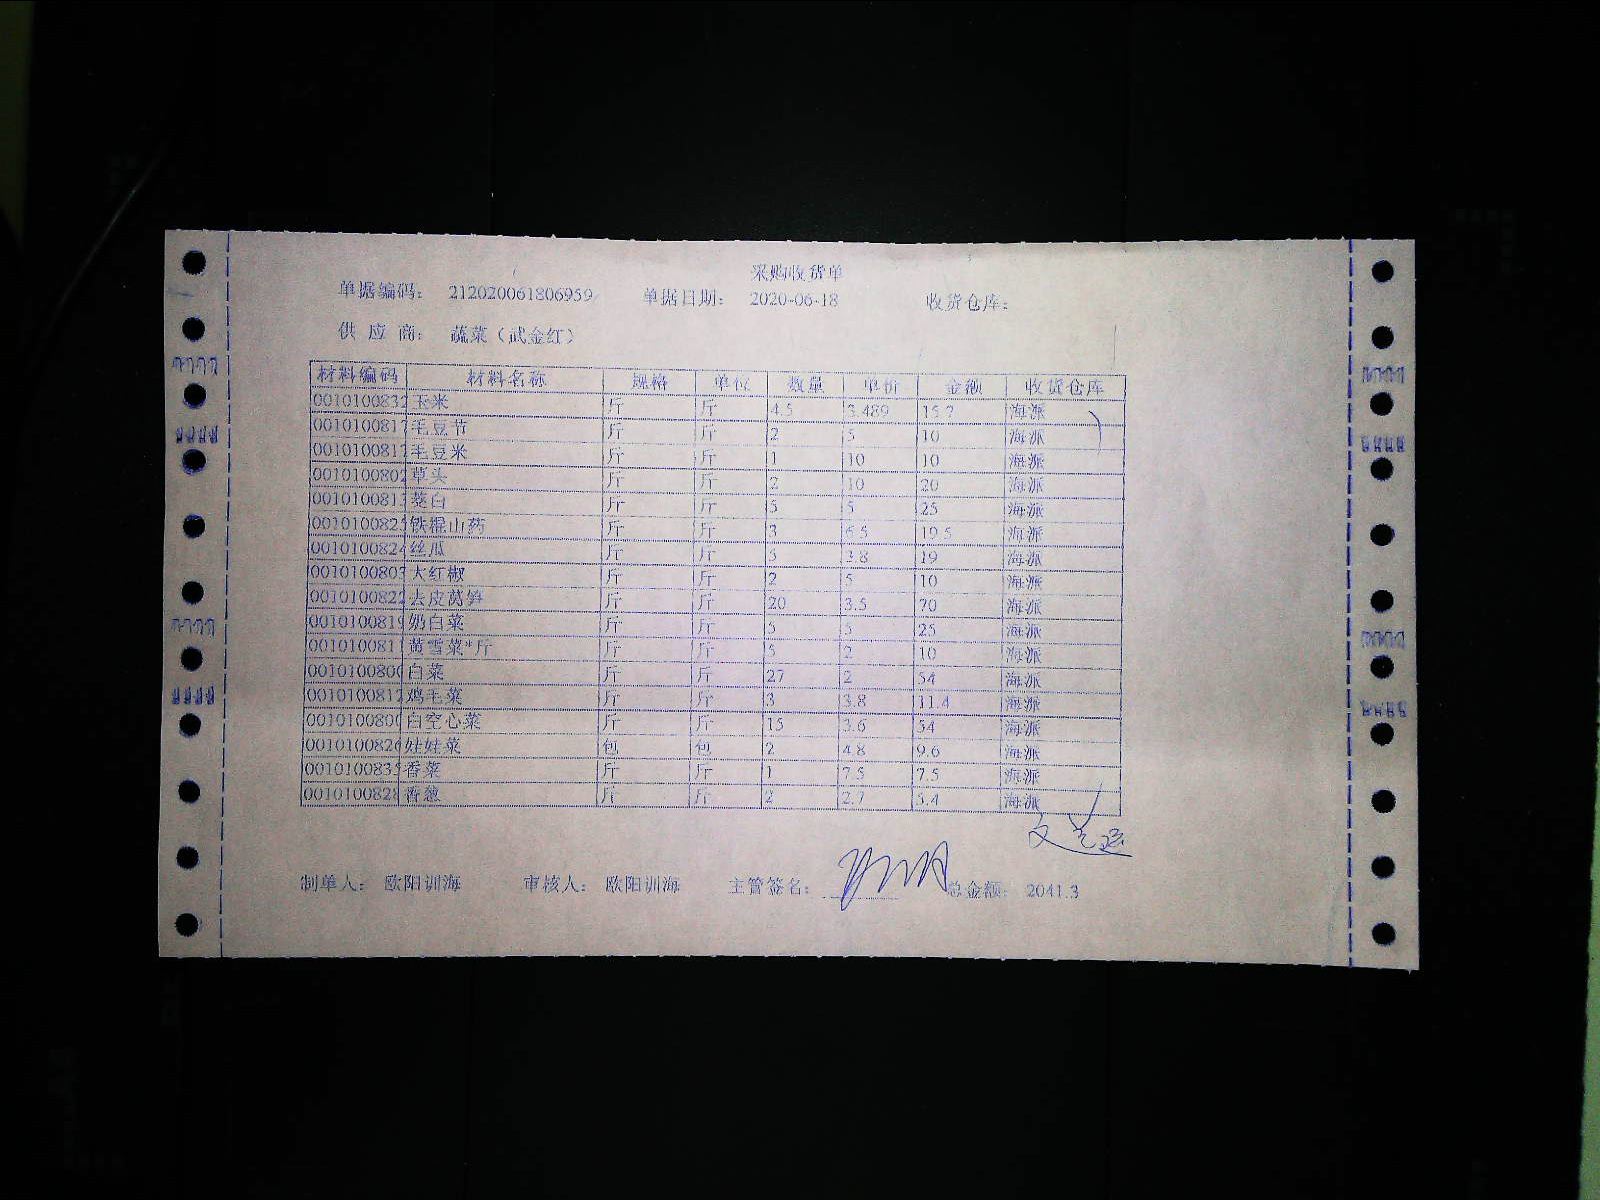 采购收货单
单据编码： 212020061806959 单据日期： 2020-06-18 收货仓库：
供 应 商： 蔬菜（武金红）
材料编码 材料名称 规格 单位 数量 单价 金额 收货仓库
0010100832 玉米 斤 斤 4.5 3.489 15.7 海派
0010100817 毛豆节 斤 斤 2 5 10 海派
0010100817 毛豆米 斤 斤 1 10 10 海派
0010100802 草头 斤 斤 2 10 20 海派
0010100813 茭白 斤 斤 5 5 25 海派
0010100825 铁棍山药 斤 斤 3 6.5 19.5 海派
0010100824 丝瓜 斤 斤 5 3.8 19 海派
0010100803 大红椒 斤 斤 2 5 10 海派
0010100822 去皮莴笋 斤 斤 20 3.5 70 海派
0010100819 奶白菜 斤 斤 5 5 25 海派
0010100811 黄雪菜*斤 斤 斤 5 2 10 海派
0010100800 白菜 斤 斤 27 2 54 海派
0010100812 鸡毛菜 斤 斤 3 3.8 11.4 海派
0010100800 白空心菜 斤 斤 15 3.6 54 海派
0010100826 娃娃菜 包 包 2 4.8 9.6 海派
0010100835 香菜 斤 斤 1 7.5 7.5 海派
0010100828 香葱 斤 斤 2 2.7 5.4 海派
制单人： 欧阳训海 审核人： 欧阳训海 主管签名： 总金额： 2041.3